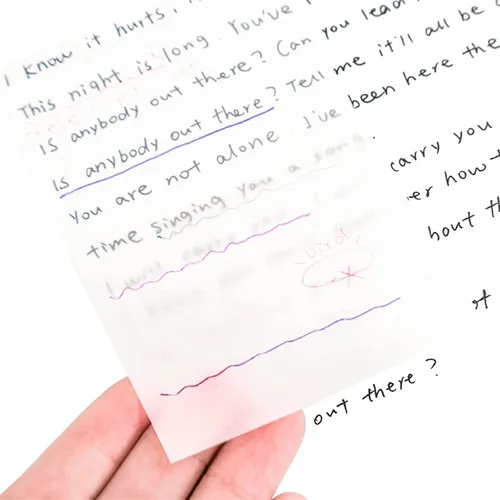 I know it hurts,
This night is long. You've
Is anybody out there? Can you lead
Is anybody out there? Tell me it'll all be
You are not alone. I've been here the
time singing you a song.
I will carry you
bird!
carry you
er how
bout th
out there?